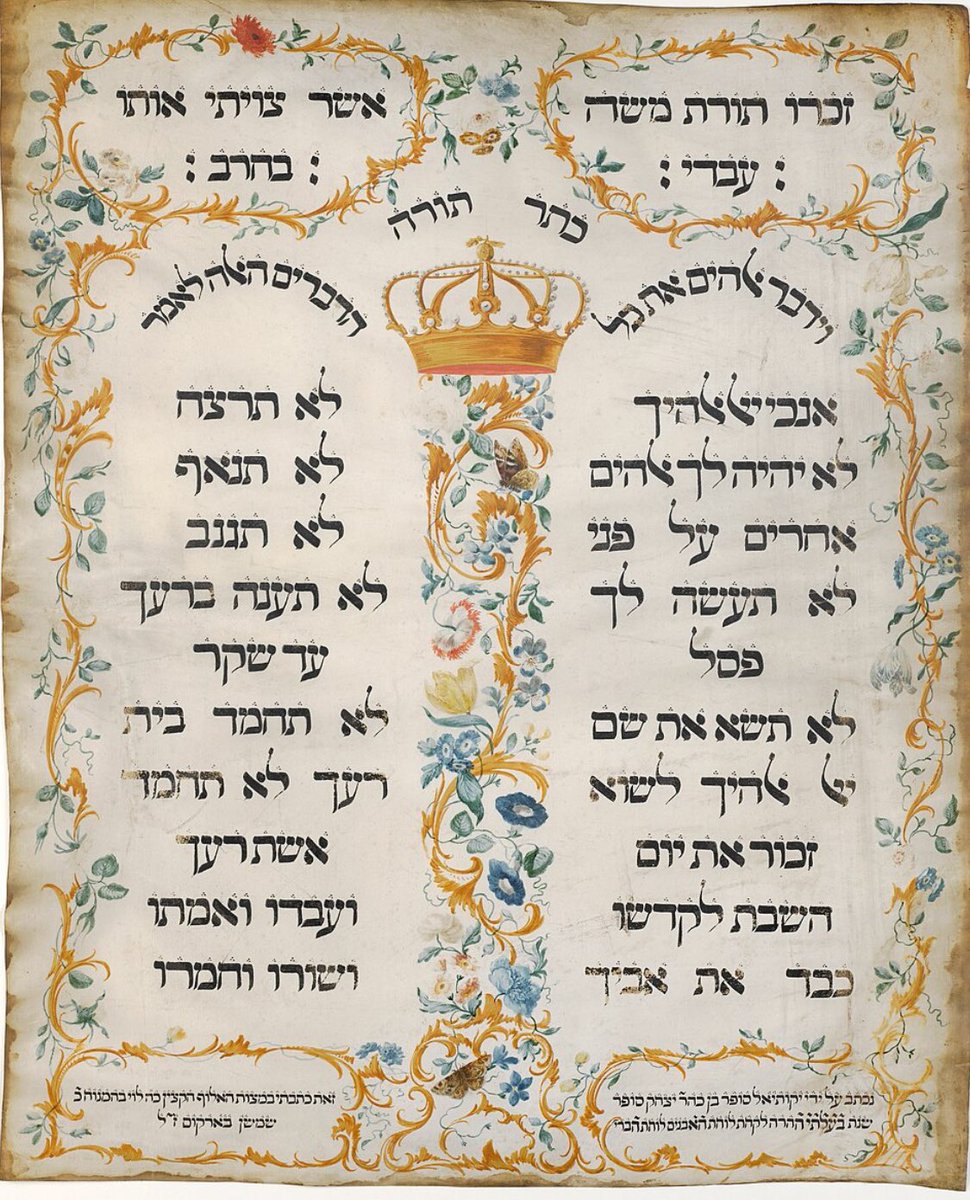 זכרו תורת משה
: עבדי :
אשר צויתי אותו
: בהרב :
כתר תורה
וידבר אלהים את כל
הדברים האלה לאמר
אנכי יאל אלהיך
לא יהיה לך אלהים
אחרים על פני
לא תעשה לך
פסל
לא תשא את שם
יאל אלהיך לשוא
זכור את יום
השבת לקדשו
כבד את אביך
לא תרצח
לא תנאף
לא תגנב
לא תענה ברעך
עד שקר
לא תחמד בית
רעך לא תחמד
אשת רעך
ועבדו ואמתו
ושורו וחמרו
נכתב על ידי יקותיאל סופר בן כהר יצחק סופר
שנת בעלתי ההרה לקחת לוחת האבנים לוחת הברי
זאת כתבתי במצות האלוף הקצין כה לוי בהמנוח כ
שמשן בארקום ז״ל